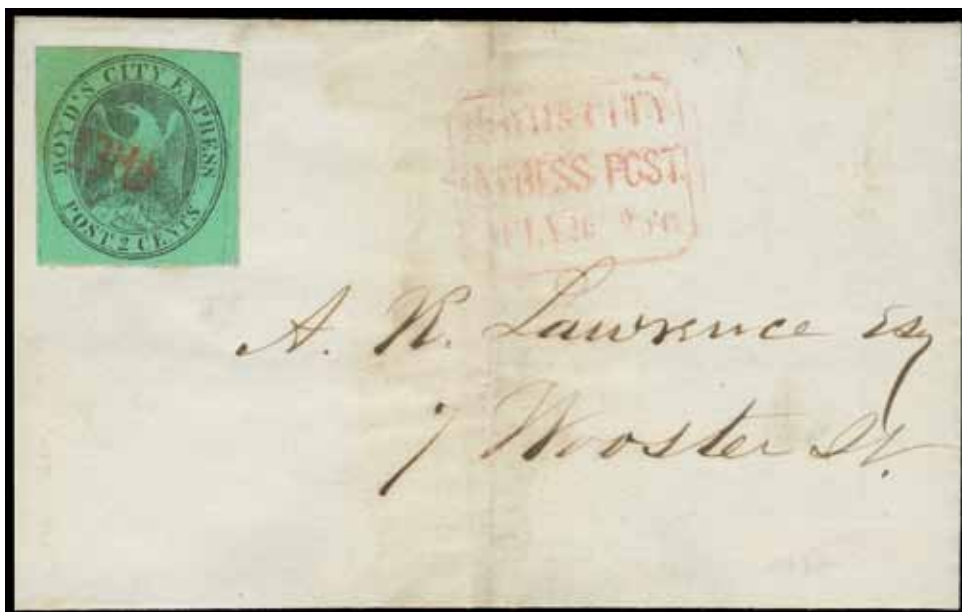 BOYD'S CITY EXPRESS
POST 2 CENTS
BOYD'S CITY
EXPRESS POST
26
A. R. Lawrence Esq
7 Wooster St.